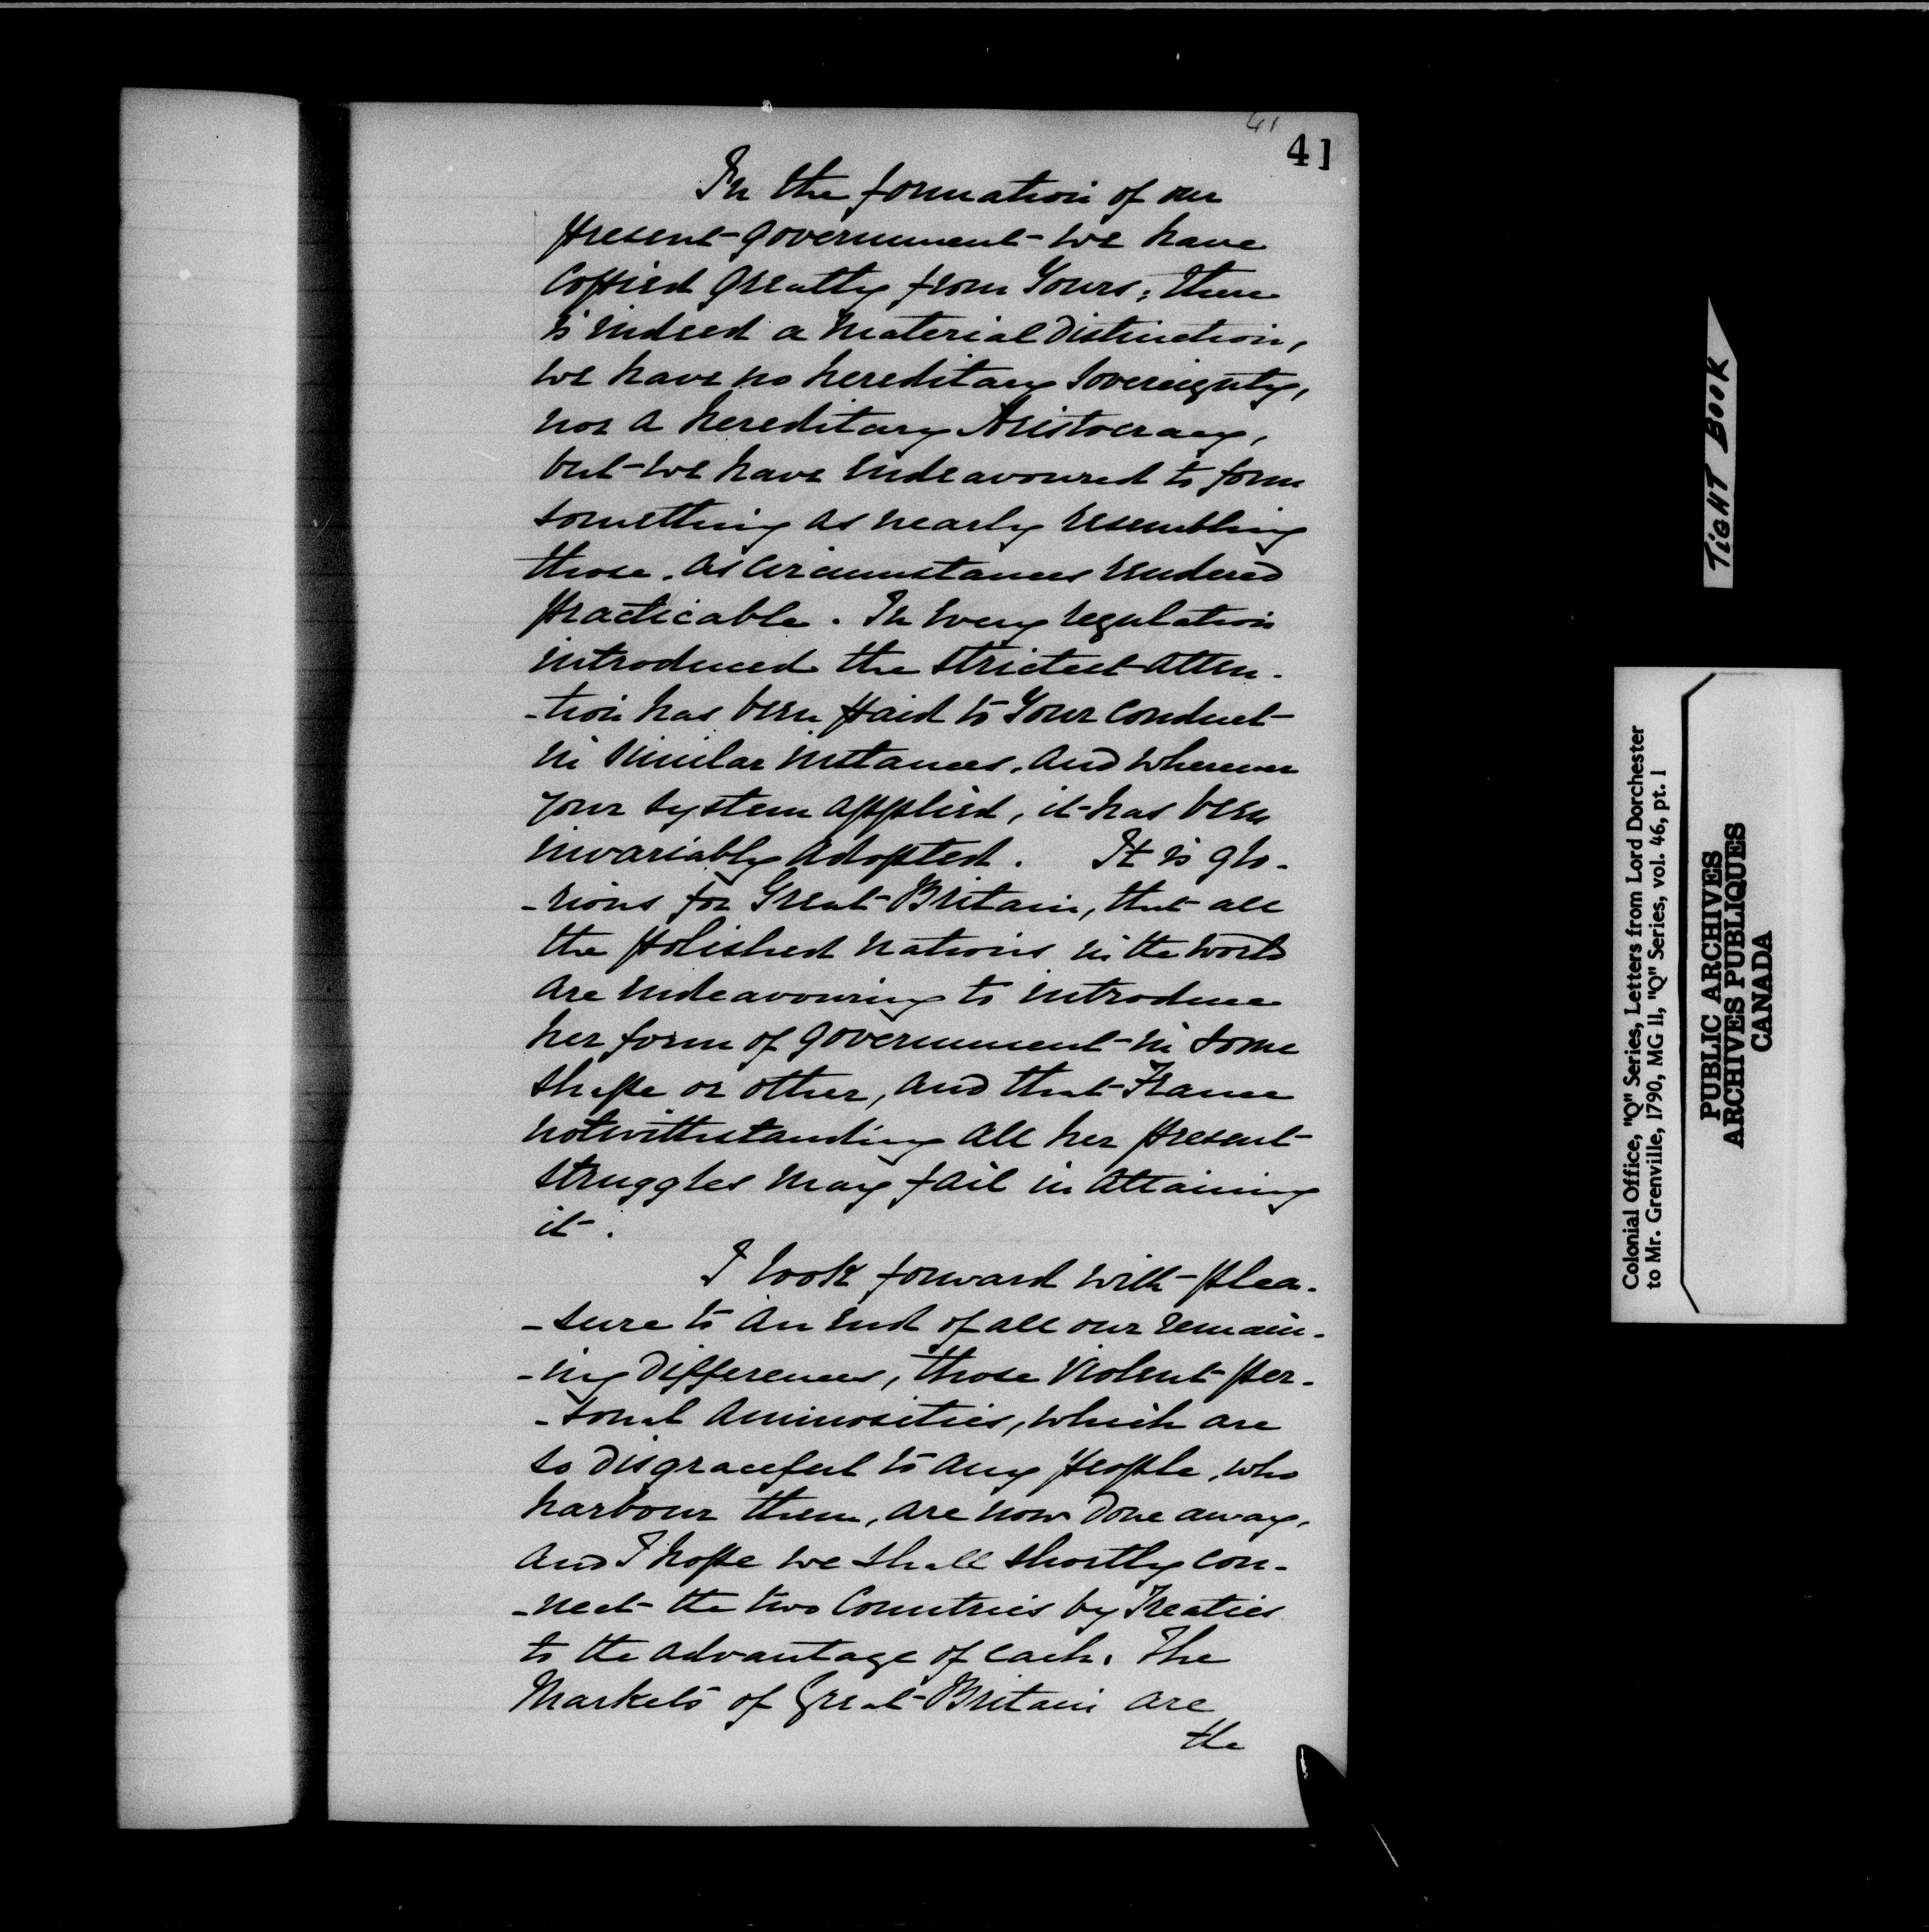 41
41
In the formation of our
present government we have
copied greatly from Yours; there
is indeed a material distinction,
we have no hereditary Sovereignty,
nor a hereditary Aristocracy,
but we have endeavoured to form
something as nearly resembling
those, as circumstances rendered
practicable. In every regulation
introduced the strictest atten-
-tion has been paid to Your conduct
in similar instances, and wherever
your system applied, it has been
invariably adopted. It is glo-
-rious for Great Britain, that all
the polished nations in the world
are endeavouring to introduce
her form of government in some
shape or other, and that France
notwithstanding all her present
struggles may fail in attaining
it.
I look forward with plea-
-sure to an end of all our remain-
-ing differences, those violent per-
-sonal animosities, which are
so disgraceful to any people, who
harbour them, are now done away,
and I hope we shall shortly con-
-nect the two Countries by Treaties
to the advantage of each. The
Markets of Great Britain are
the
TIGHT BOOK
Colonial Office, "Q" Series, Letters from Lord Dorchester
to Mr. Grenville, 1790, MG 11, "Q" Series, vol. 46, pt. 1
PUBLIC ARCHIVES
ARCHIVES PUBLIQUES
CANADA